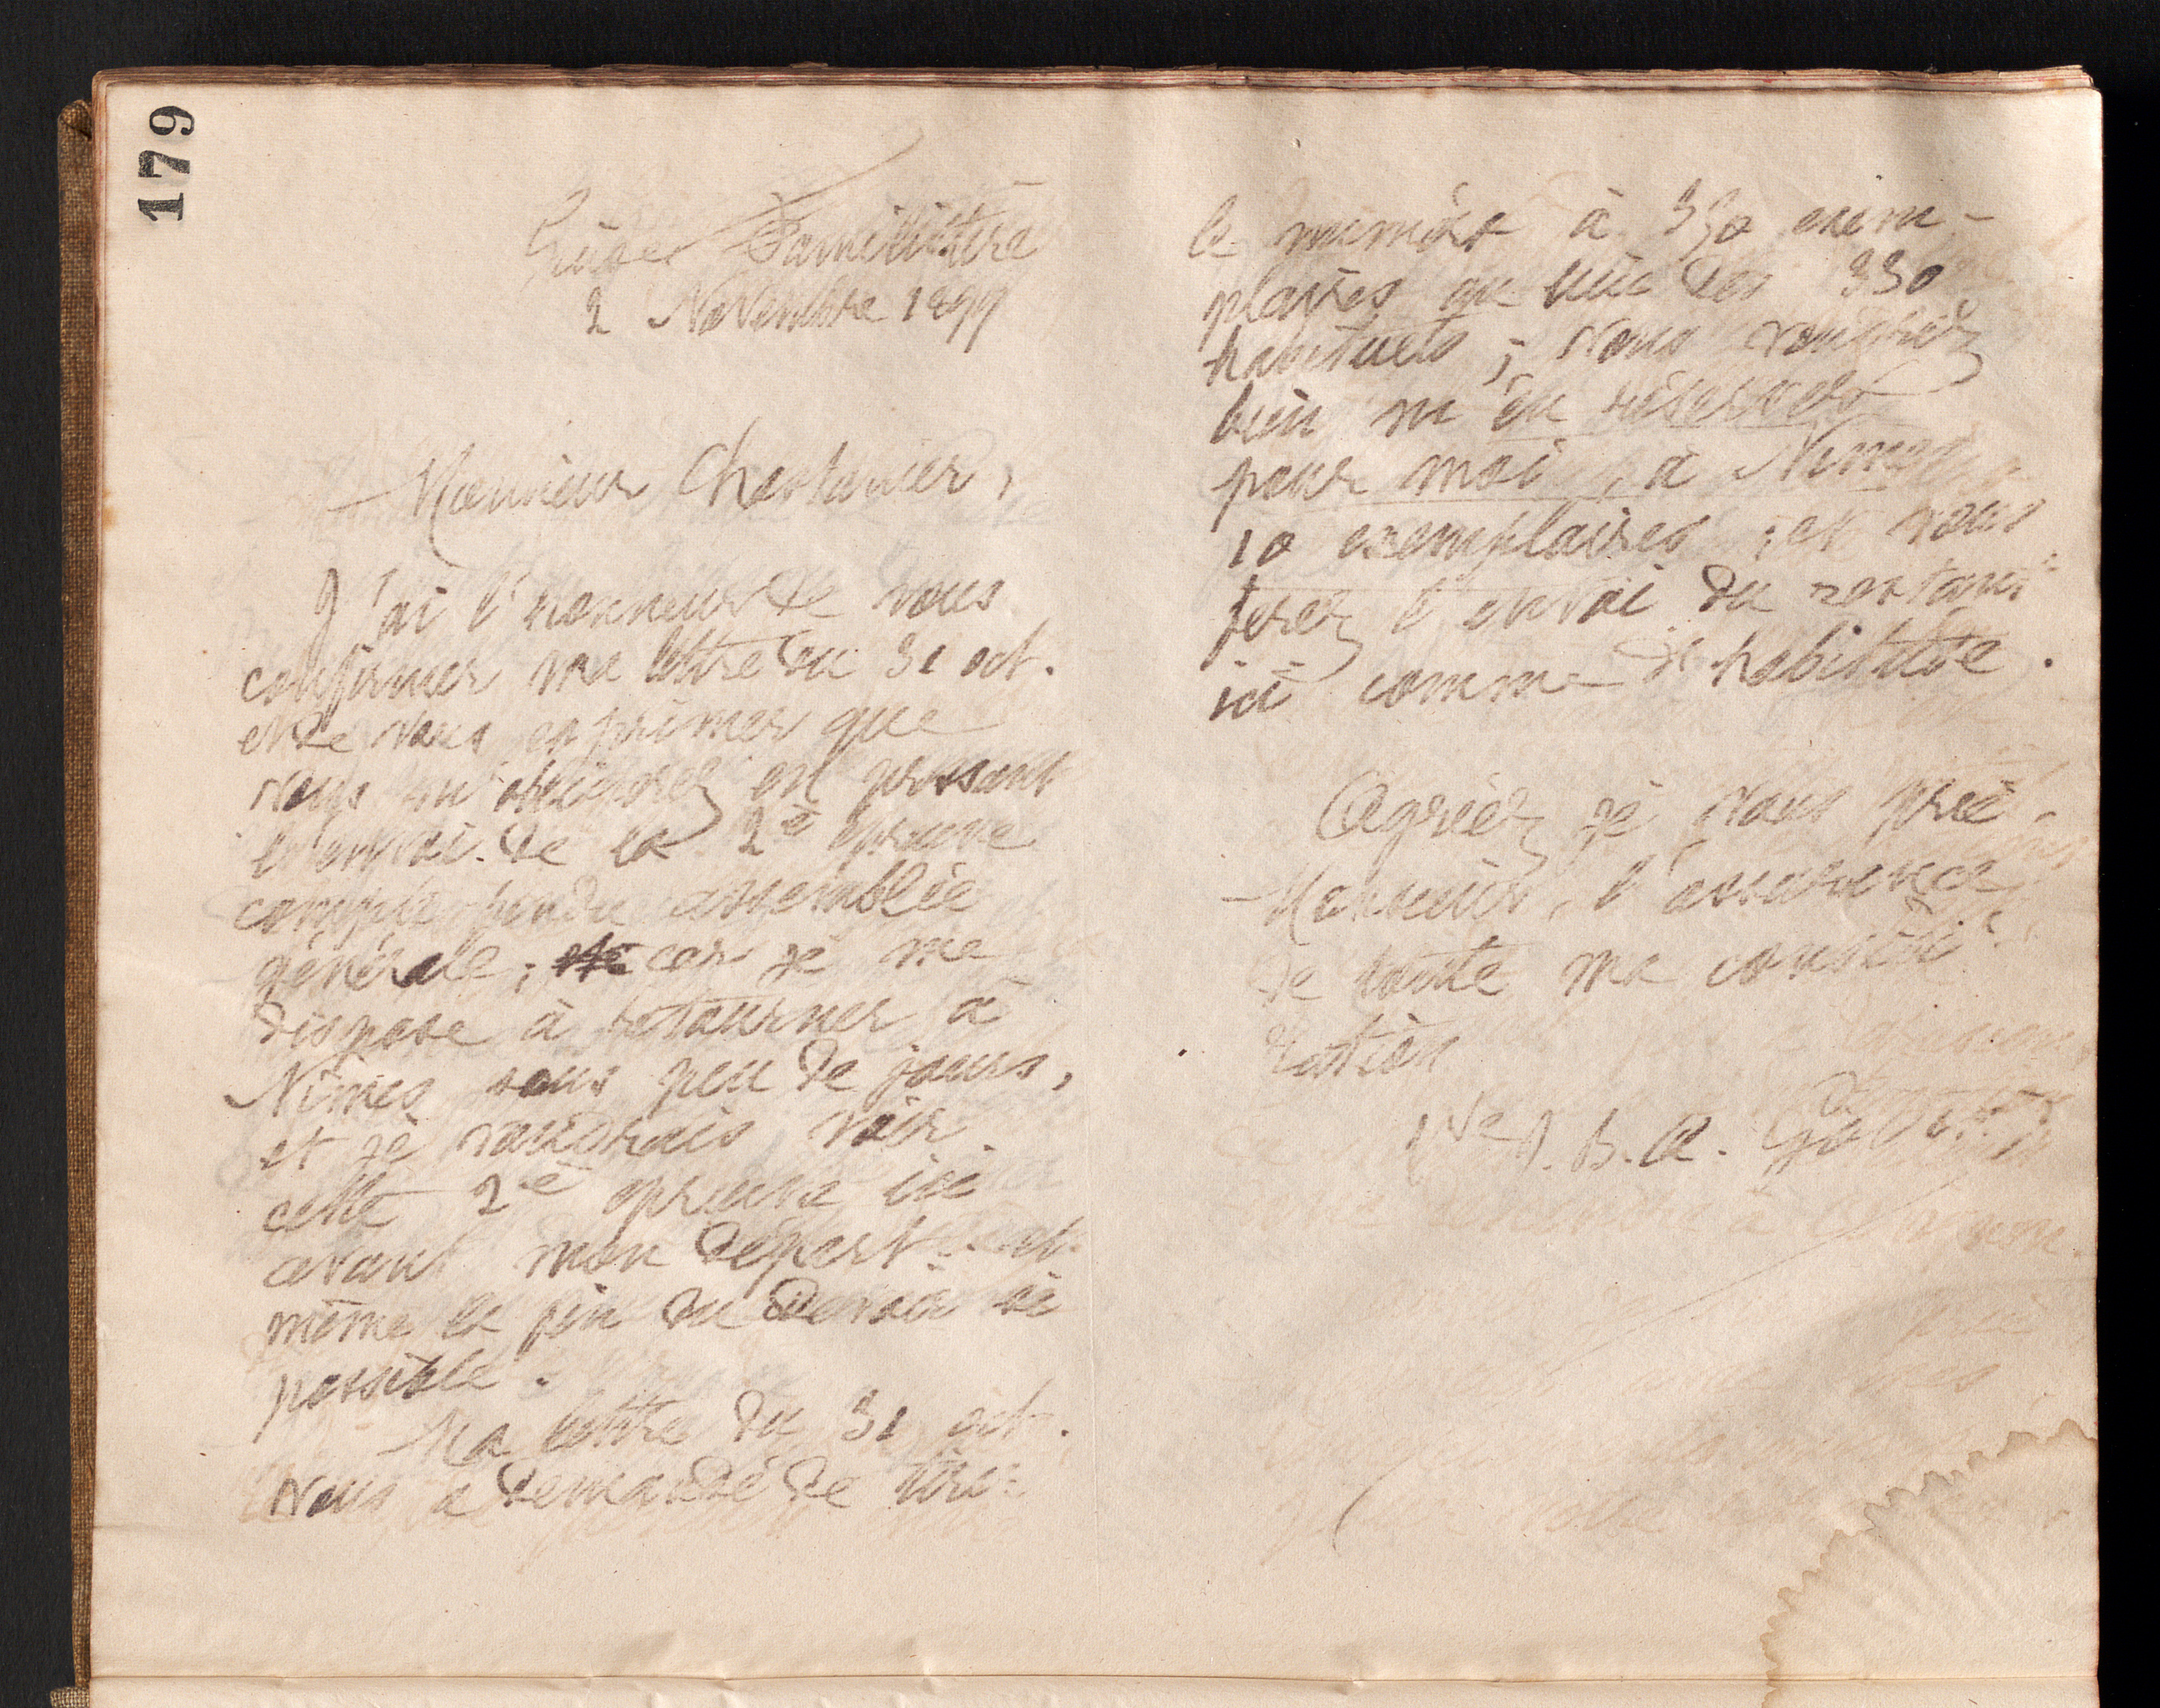 179
Guise Familistère
2 Novembre 1899
Monsieur Chastanier,
J'ai l'honneur de vous
confirmer ma lettre du 31 oct.
et de vous exprimer que
vous m'obligerez en pressant
l'envoi de la 2e épreuve
compte rendu assemblée
générale, car je me
dispose à retourner à
Nîmes sous peu de jours,
et je voudrais voir
cette 2e épreuve ici
avant mon départ. et
même la fin du Devoir si
possible.
Ma lettre du 31 oct.
vous a demandé de tirer
le numéro à 350 exem-
plaires au lieu des 330
habituels ; vous voudrez
bien m'en réserver
pour moi, à Nîmes
10 exemplaires, et vous
ferez l'envoi du restant
ici comme d'habitude.
Agréez, je vous prie,
Monsieur, l'assurance
de toute ma considé-
ration
Vve J. B. A. Godin